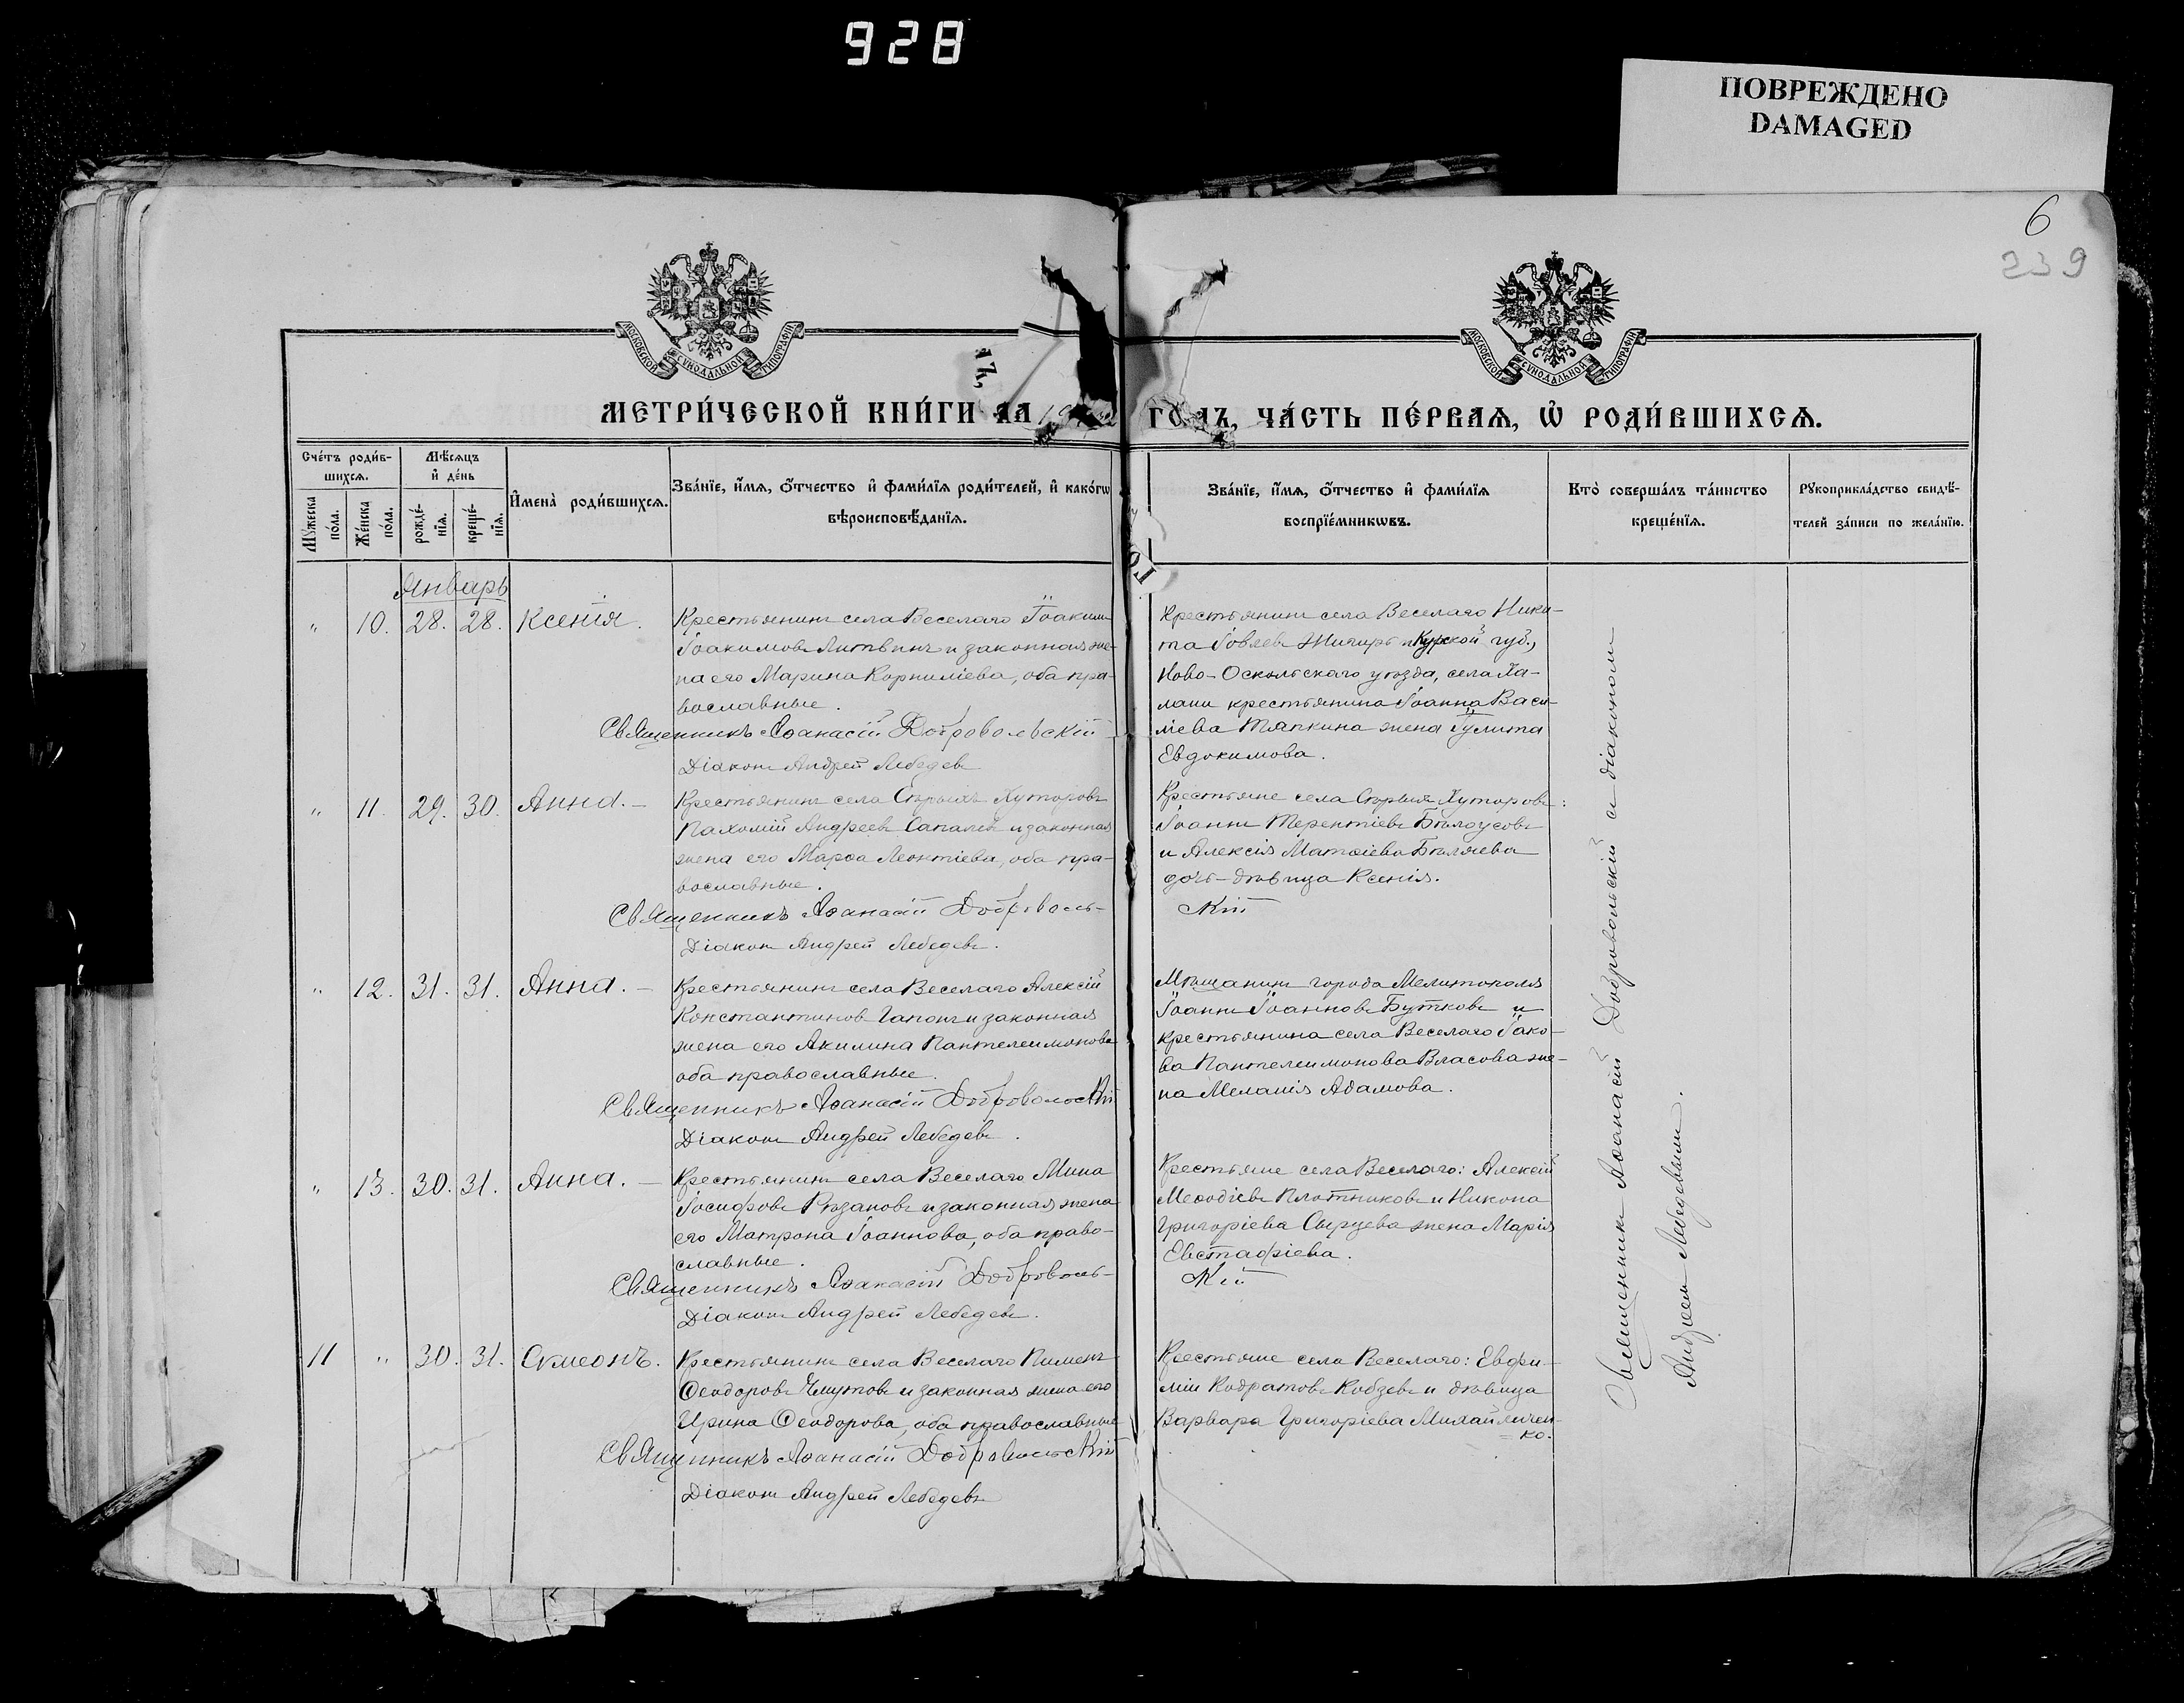 928
ПОВРЕЖДЕНО
DAMAGED
6
239
МОСКОВСКОЙ СѴНОДАЛЬНОЙ ТИПОГРАФІИ
МОСКОВСКОЙ СѴНОДАЛЬНОЙ ТИПОГРАФІИ
МЕТРИ́ЧЕСКОЙ КНИ́ГИ ЗА 19 ГОДЪ, ЧА́СТЬ ПЕ́РВАѦ, Ѡ҆ РОДИ́ВШИХСѦ.
Сче́тъ роди́в-
шихсѧ.
Мꙋ́жеска по́ла.
Же́нска по́ла.
Мѣ́сѧцъ
и҆ де́нь
рожде́-
нїѧ.
креще́-
нїѧ.
И҆мена̀ роди́вшихсѧ.
Зва́нїе, и҆́мѧ, ѻ҆́тчество и҆ фами́лїѧ роди́телей, и҆ како́гѡ
вѣроисповѣ́данїѧ.
Зва́нїе, и҆́мѧ, ѻ҆́тчество и҆ фами́лїѧ
воспрїе́мникѡвъ.
Кто̀ соверша́лъ та́инство
креще́нїѧ.
Рꙋкоприкла́дство свидѣ́-
телей за́писи по жела́нїю.
Январь
" 10. 28. 28. Ксенія.
Крестьянинъ села Веселаго Іоакимъ
Іоакимовъ Литвинъ и законная же-
на его Марина Корниліева, оба пра-
вославные.
Священникъ Аѳанасій Добровольскій
Діаконъ Андрей Лебедевъ
Крестьянинъ села Веселаго Ники-
та Іовлевъ Жигирь и Курской губ.,
Ново-Оскольскаго уѣзда, села Ха-
лани крестьянина Іоанна Васи-
ліева Тяпкина жена Іулита
Евдокимова.
" 11. 29. 30. Анна. —
Крестьянинъ села Сѣрыхъ Хуторовъ
Пахомій Андреевъ и законная
жена его Марѳа Леонтіева, оба пра-
вославные.
Священникъ Аѳанасій Доброволь-
Діаконъ Андрей Лебедевъ.
Крестьяне села Сѣрыхъ Хуторовъ:
Іоаннъ Терентіевъ Бѣлоусовъ
и Алексія Матѳіева Бѣляева
дочь-дѣвица Ксенія.
скій
" 12. 31. 31. Анна. —
Крестьянинъ села Веселаго Алексій
Константиновъ Гапонъ и законная
жена его Акилина Пантелеимонова
оба православные.
Священникъ Аѳанасій Добровольскій
Діаконъ Андрей Лебедевъ.
Мѣщанинъ города Мелитополя
Іоаннъ Іоанновъ Бутковъ и
крестьянина села Веселаго Іако-
ва Пантелеимонова Власова же-
на Меланія Адамова.
" 13. 30. 31. Анна. —
Крестьянинъ села Веселаго Мина
Іосифовъ Рѣзановъ и законная жена
его Матрона Іоаннова, оба право-
славные.
Священникъ Аѳанасій Доброволь-
Діаконъ Андрей Лебедевъ.
Крестьяне села Веселаго: Алексій
Меѳодіевъ Плотниковъ и Никона
Григоріева Сырцева жена Марія
Евстафіева.
скій
11 " 30. 31. Сѵмеонъ.
Крестьянинъ села Веселаго Пименъ
Ѳеодоровъ и законная жена его
Ирина Ѳеодорова, оба православные
Священникъ Аѳанасій Добровольскій
Діаконъ Андрей Лебедевъ
Крестьяне села Веселаго: Евфи-
мій Кодратовъ Кобзевъ и дѣвица
Варвара Григоріева Михайличен-
ко.
Священникъ Аѳанасій Добровольскій съ діакономъ
Андреемъ Лебедевымъ.